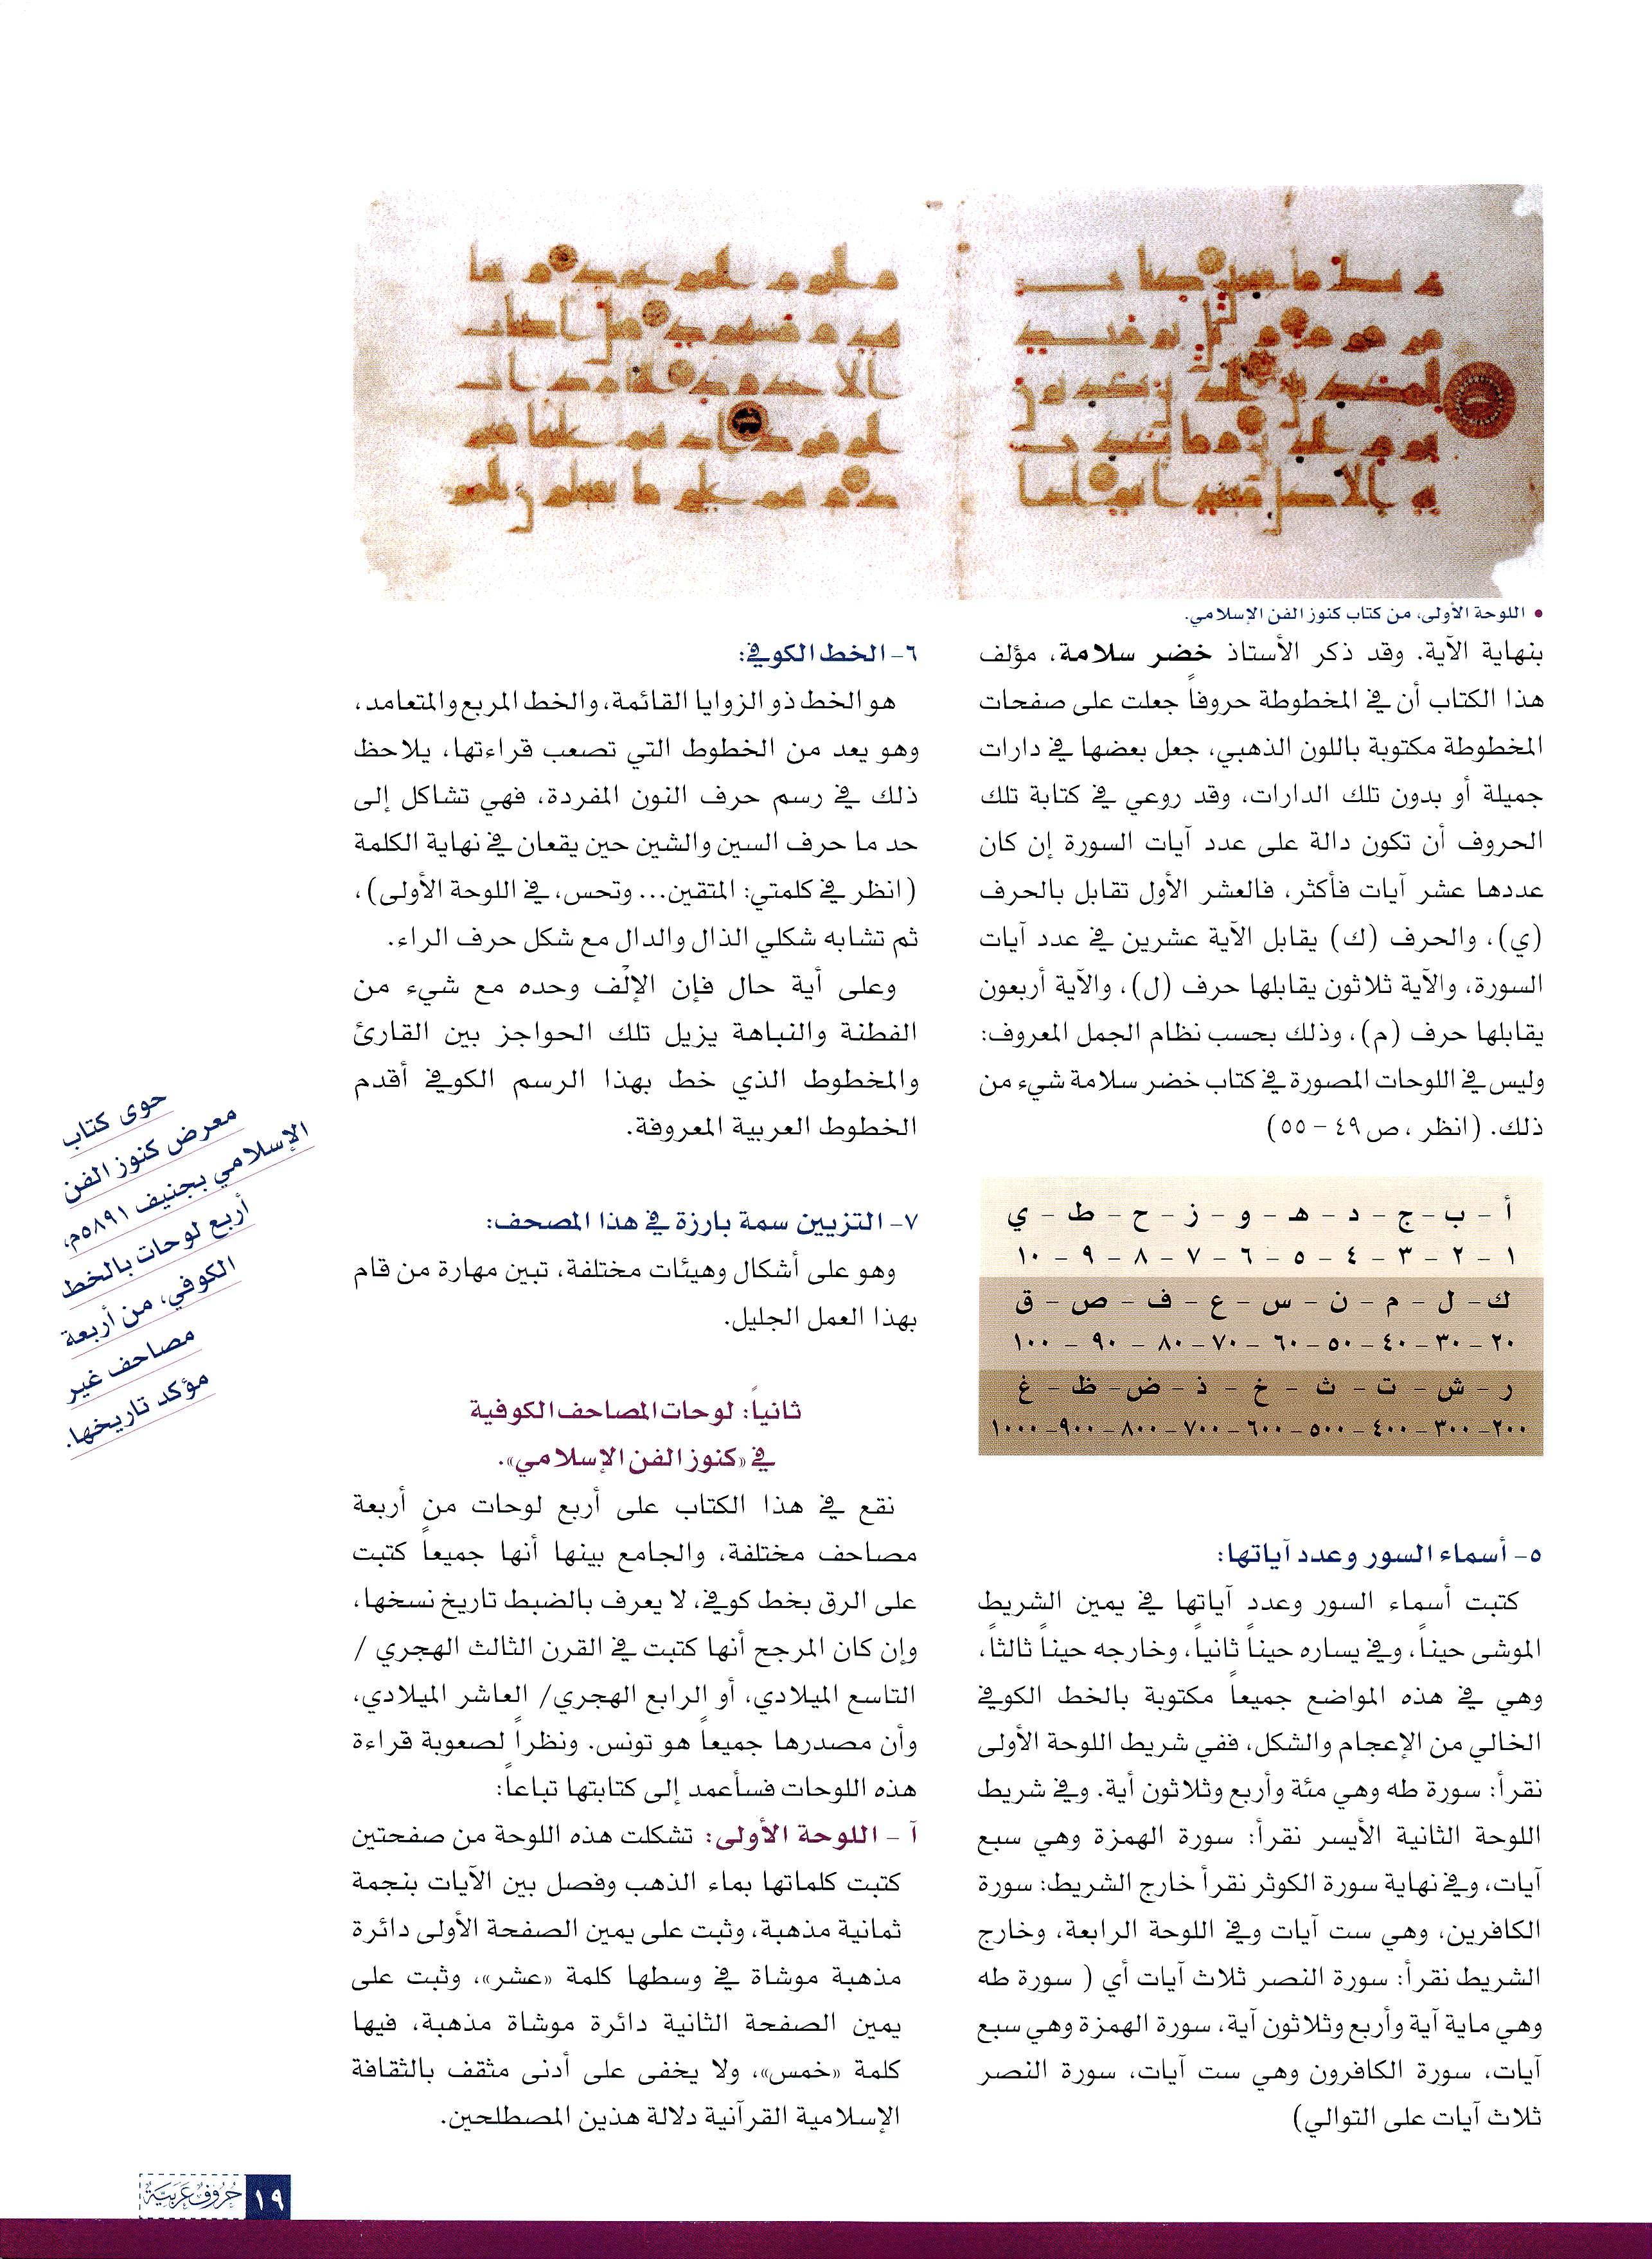 • اللوحة الأولى، من كتاب كنوز الفن الإسلامي.
بنهاية الآية. وقد ذكر الأستاذ خضر سلامة، مؤلف
هذا الكتاب أن في المخطوطة حروفاً جعلت على صفحات
المخطوطة مكتوبة باللون الذهبي، جعل بعضها في دارات
جميلة أو بدون تلك الدارات، وقد روعي في كتابة تلك
الحروف أن تكون دالة على عدد آيات السورة إن كان
عددها عشر آيات فأكثر، فالعشر الأول تقابل بالحرف
(ي)، والحرف (ك) يقابل الآية عشرين في عدد آيات
السورة، والآية ثلاثون يقابلها حرف (ل)، والآية أربعون
يقابلها حرف (م)، وذلك بحسب نظام الجمل المعروف:
وليس في اللوحات المصورة في كتاب خضر سلامة شيء من
ذلك. (انظر ، ص ٤٩ – ٥٥)
أ – ب – ج – د – هـ – و – ز – ح – ط – ي
١ – ٢ – ٣ – ٤ – ٥ – ٦ – ٧ – ٨ – ٩ – ١٠
ك – ل – م – ن – س – ع – ف – ص – ق
٢٠ – ٣٠ – ٤٠ – ٥٠ – ٦٠ – ٧٠ – ٨٠ – ٩٠ – ١٠٠
ر – ش – ت – ث – خ – ذ – ض – ظ – غ
٢٠٠ – ٣٠٠ – ٤٠٠ – ٥٠٠ – ٦٠٠ – ٧٠٠ – ٨٠٠ – ٩٠٠ – ١٠٠٠
٥- أسماء السور وعدد آياتها:
كتبت أسماء السور وعدد آياتها في يمين الشريط
الموشى حيناً، وفي يساره حيناً ثانياً، وخارجه حيناً ثالثاً،
وهي في هذه المواضع جميعاً مكتوبة بالخط الكوفي
الخالي من الإعجام والشكل، ففي شريط اللوحة الأولى
نقرأ: سورة طه وهي مئة وأربع وثلاثون أية. وفي شريط
اللوحة الثانية الأيسر نقرأ: سورة الهمزة وهي سبع
آيات، وفي نهاية سورة الكوثر نقرأ خارج الشريط: سورة
الكافرين، وهي ست آيات وفي اللوحة الرابعة، وخارج
الشريط نقرأ: سورة النصر ثلاث آيات أي ( سورة طه
وهي ماية آية وأربع وثلاثون آية، سورة الهمزة وهي سبع
آيات، سورة الكافرون وهي ست آيات، سورة النصر
ثلاث آيات على التوالي)
٦- الخط الكوفي:
هو الخط ذو الزوايا القائمة، والخط المربع والمتعامد،
وهو يعد من الخطوط التي تصعب قراءتها، يلاحظ
ذلك في رسم حرف النون المفردة، فهي تشاكل إلى
حد ما حرف السين والشين حين يقعان في نهاية الكلمة
(انظر في كلمتي: المتقين... وتحس، في اللوحة الأولى)،
ثم تشابه شكلي الذال والدال مع شكل حرف الراء.
وعلى أية حال فإن الإلْف وحده مع شيء من
الفطنة والنباهة يزيل تلك الحواجز بين القارئ
والمخطوط الذي خط بهذا الرسم الكوفي أقدم
الخطوط العربية المعروفة.
٧- التزيين سمة بارزة في هذا المصحف:
وهو على أشكال وهيئات مختلفة، تبين مهارة من قام
بهذا العمل الجليل.
ثانياً: لوحات المصاحف الكوفية
في «كنوز الفن الإسلامي».
نقع في هذا الكتاب على أربع لوحات من أربعة
مصاحف مختلفة، والجامع بينها أنها جميعاً كتبت
على الرق بخط كوفي، لا يعرف بالضبط تاريخ نسخها،
وإن كان المرجح أنها كتبت في القرن الثالث الهجري /
التاسع الميلادي، أو الرابع الهجري/ العاشر الميلادي،
وأن مصدرها جميعاً هو تونس. ونظراً لصعوبة قراءة
هذه اللوحات فسأعمد إلى كتابتها تباعاً:
آ – اللوحة الأولى: تشكلت هذه اللوحة من صفحتين
كتبت كلماتها بماء الذهب وفصل بين الآيات بنجمة
ثمانية مذهبة، وثبت على يمين الصفحة الأولى دائرة
مذهبة موشاة في وسطها كلمة «عشر»، وثبت على
يمين الصفحة الثانية دائرة موشاة مذهبة، فيها
كلمة «خمس»، ولا يخفى على أدنى مثقف بالثقافة
الإسلامية القرآنية دلالة هذين المصطلحين.
حوى كتاب
معرض كنوز الفن
الإسلامي بجنيف ٥٨٩١م،
أربع لوحات بالخط
الكوفي، من أربعة
مصاحف غير
مؤكد تاريخها.
١٩ حُرُوفٌ عَرَبِيَّة